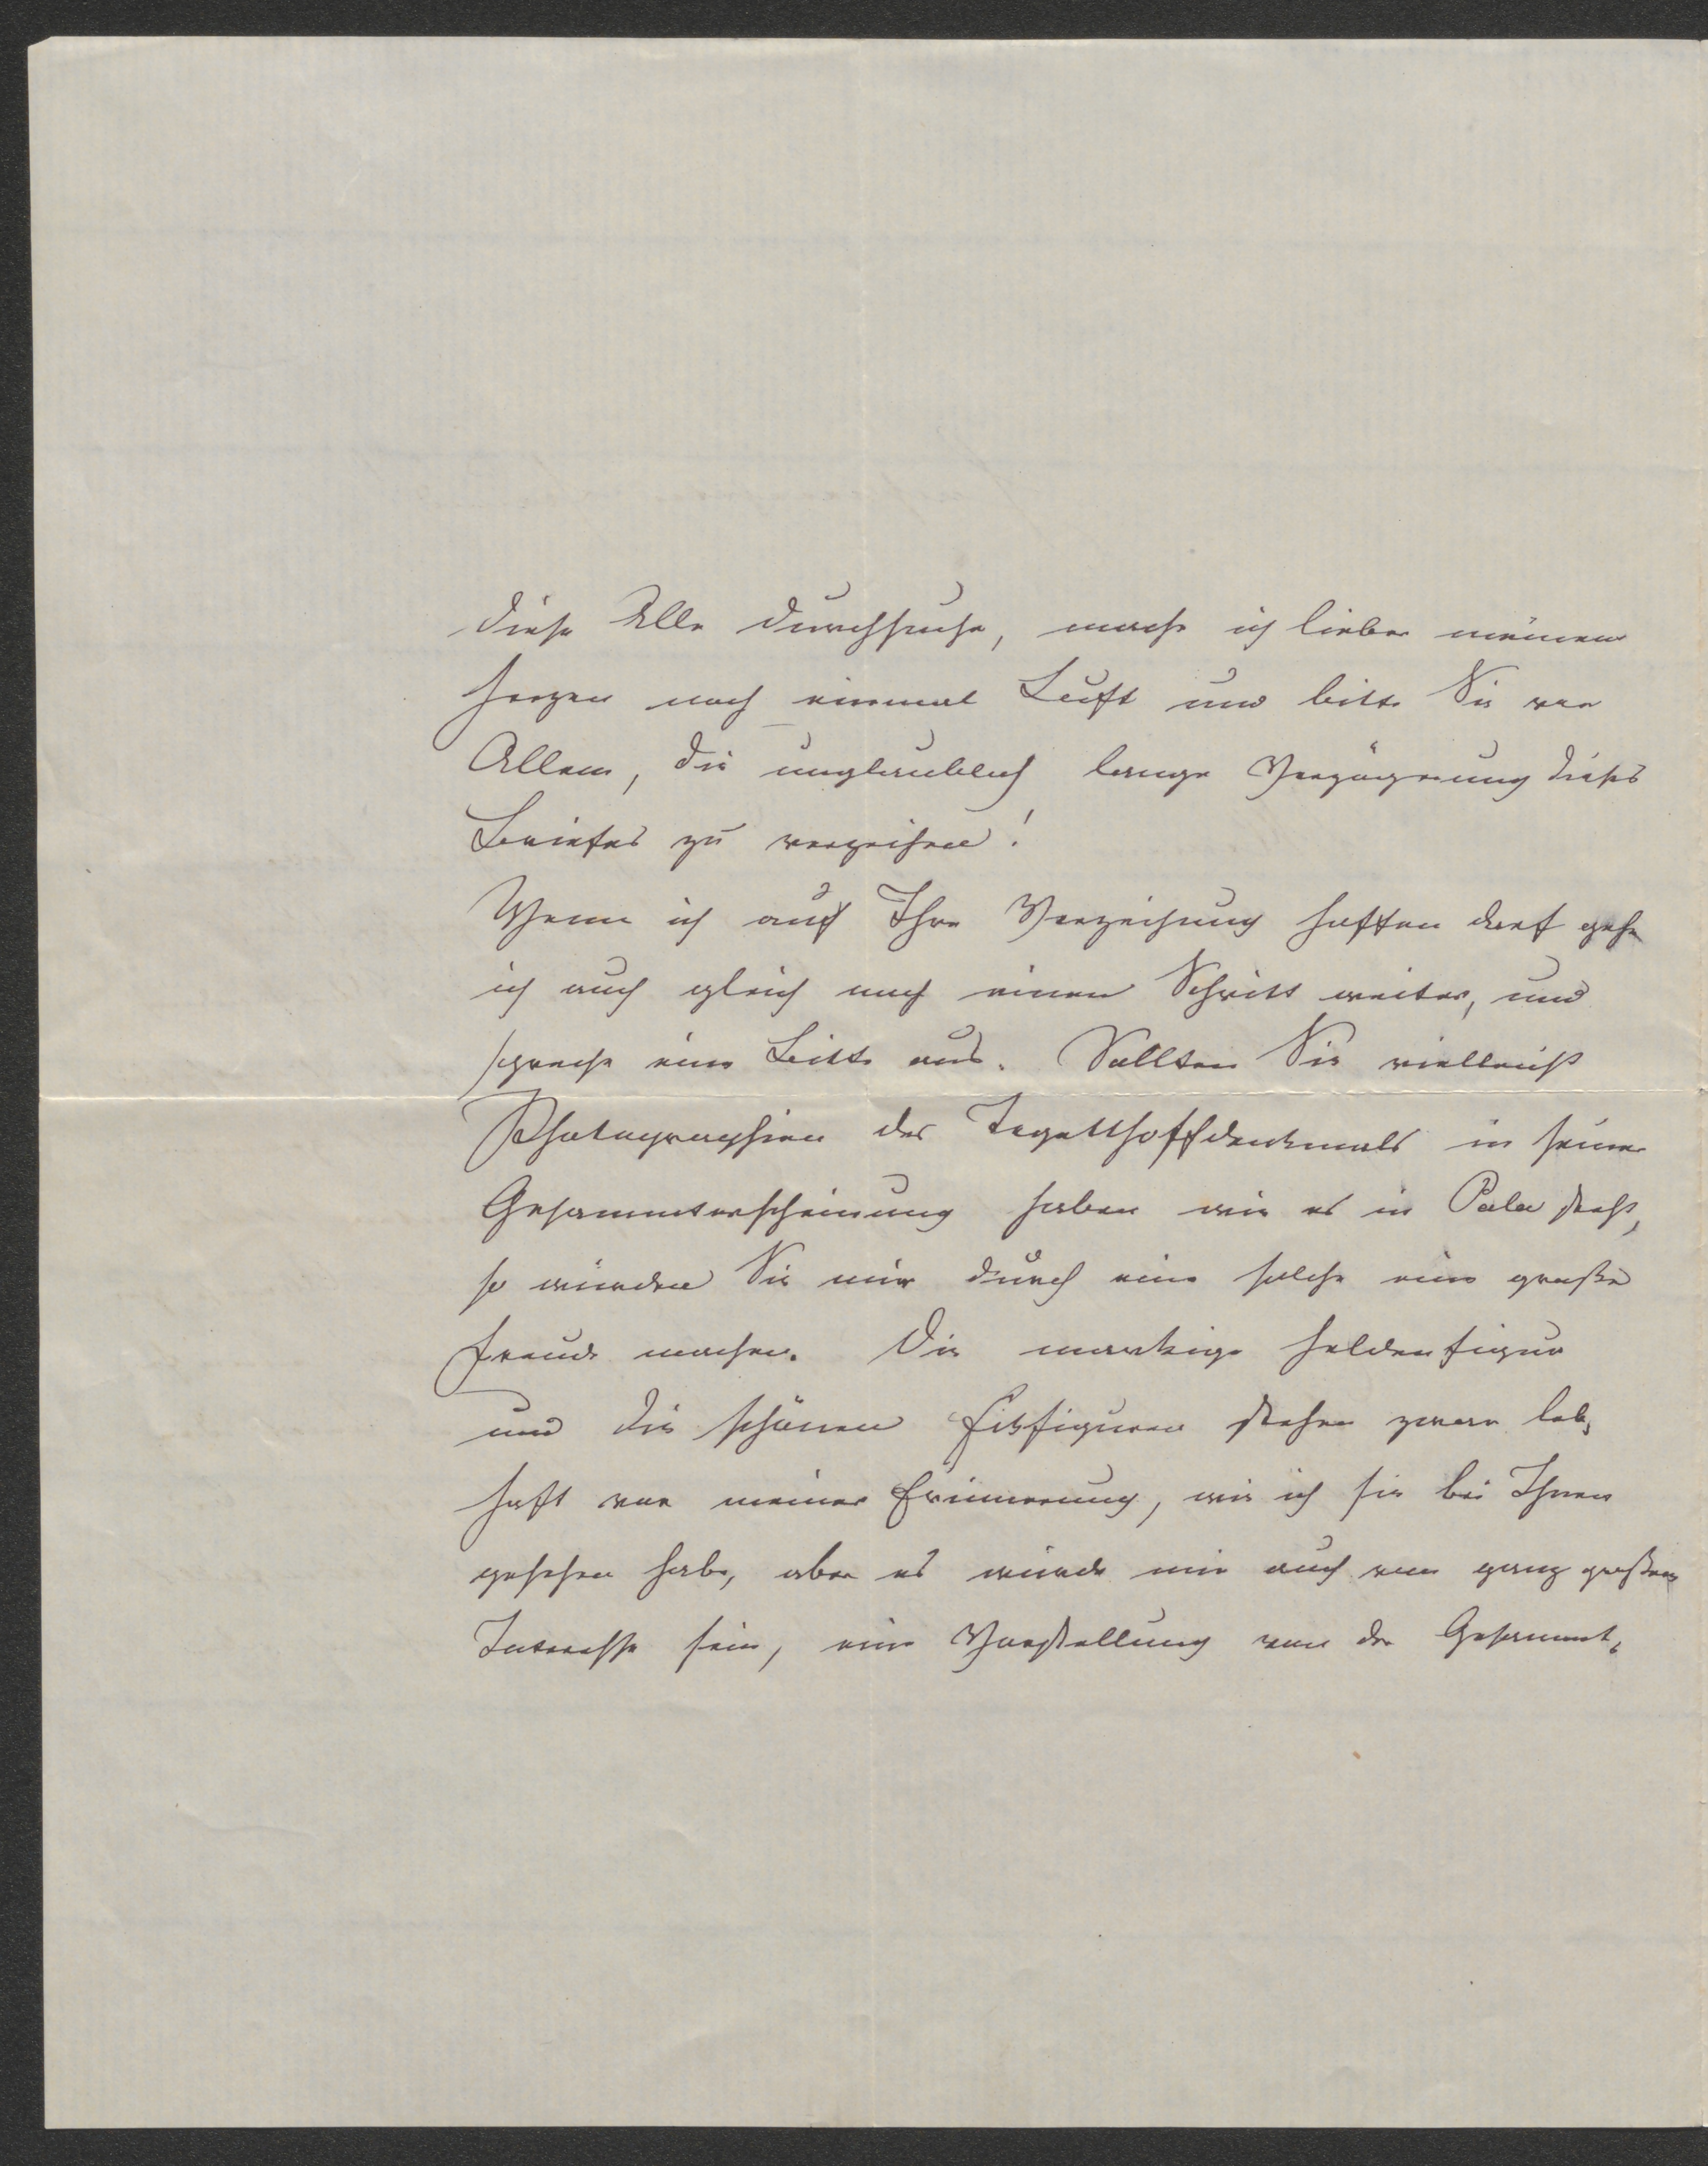 diese Alle durchsuche, mache ich lieber meinem
Herzen noch einmal Luft und bitte Sie vor
Allem, die unglaublich lange Verzögerung dieses
Briefes zu verzeihen!
Wenn ich auf Ihre Verzeihung hoffen darf gehe
ich auch gleich noch einen Schritt weiter, und
spreche eine Bitte aus. Sollten Sie vielleicht
Photographien des Tegetthoffdenkmals in seiner
Gesammterscheinung haben wie es in Pola steht,
so würden Sie mir durch eine solche eine große
Freude machen. Die markige Heldenfigur
und die schönen Eckfiguren stehen zwar leb-
haft vor meiner Erinnerung, wie ich sie bei Ihnen
gesehen habe, aber es würde mir auch von ganz großem
Interesse sein, eine Vorstellung von der Gesammt-